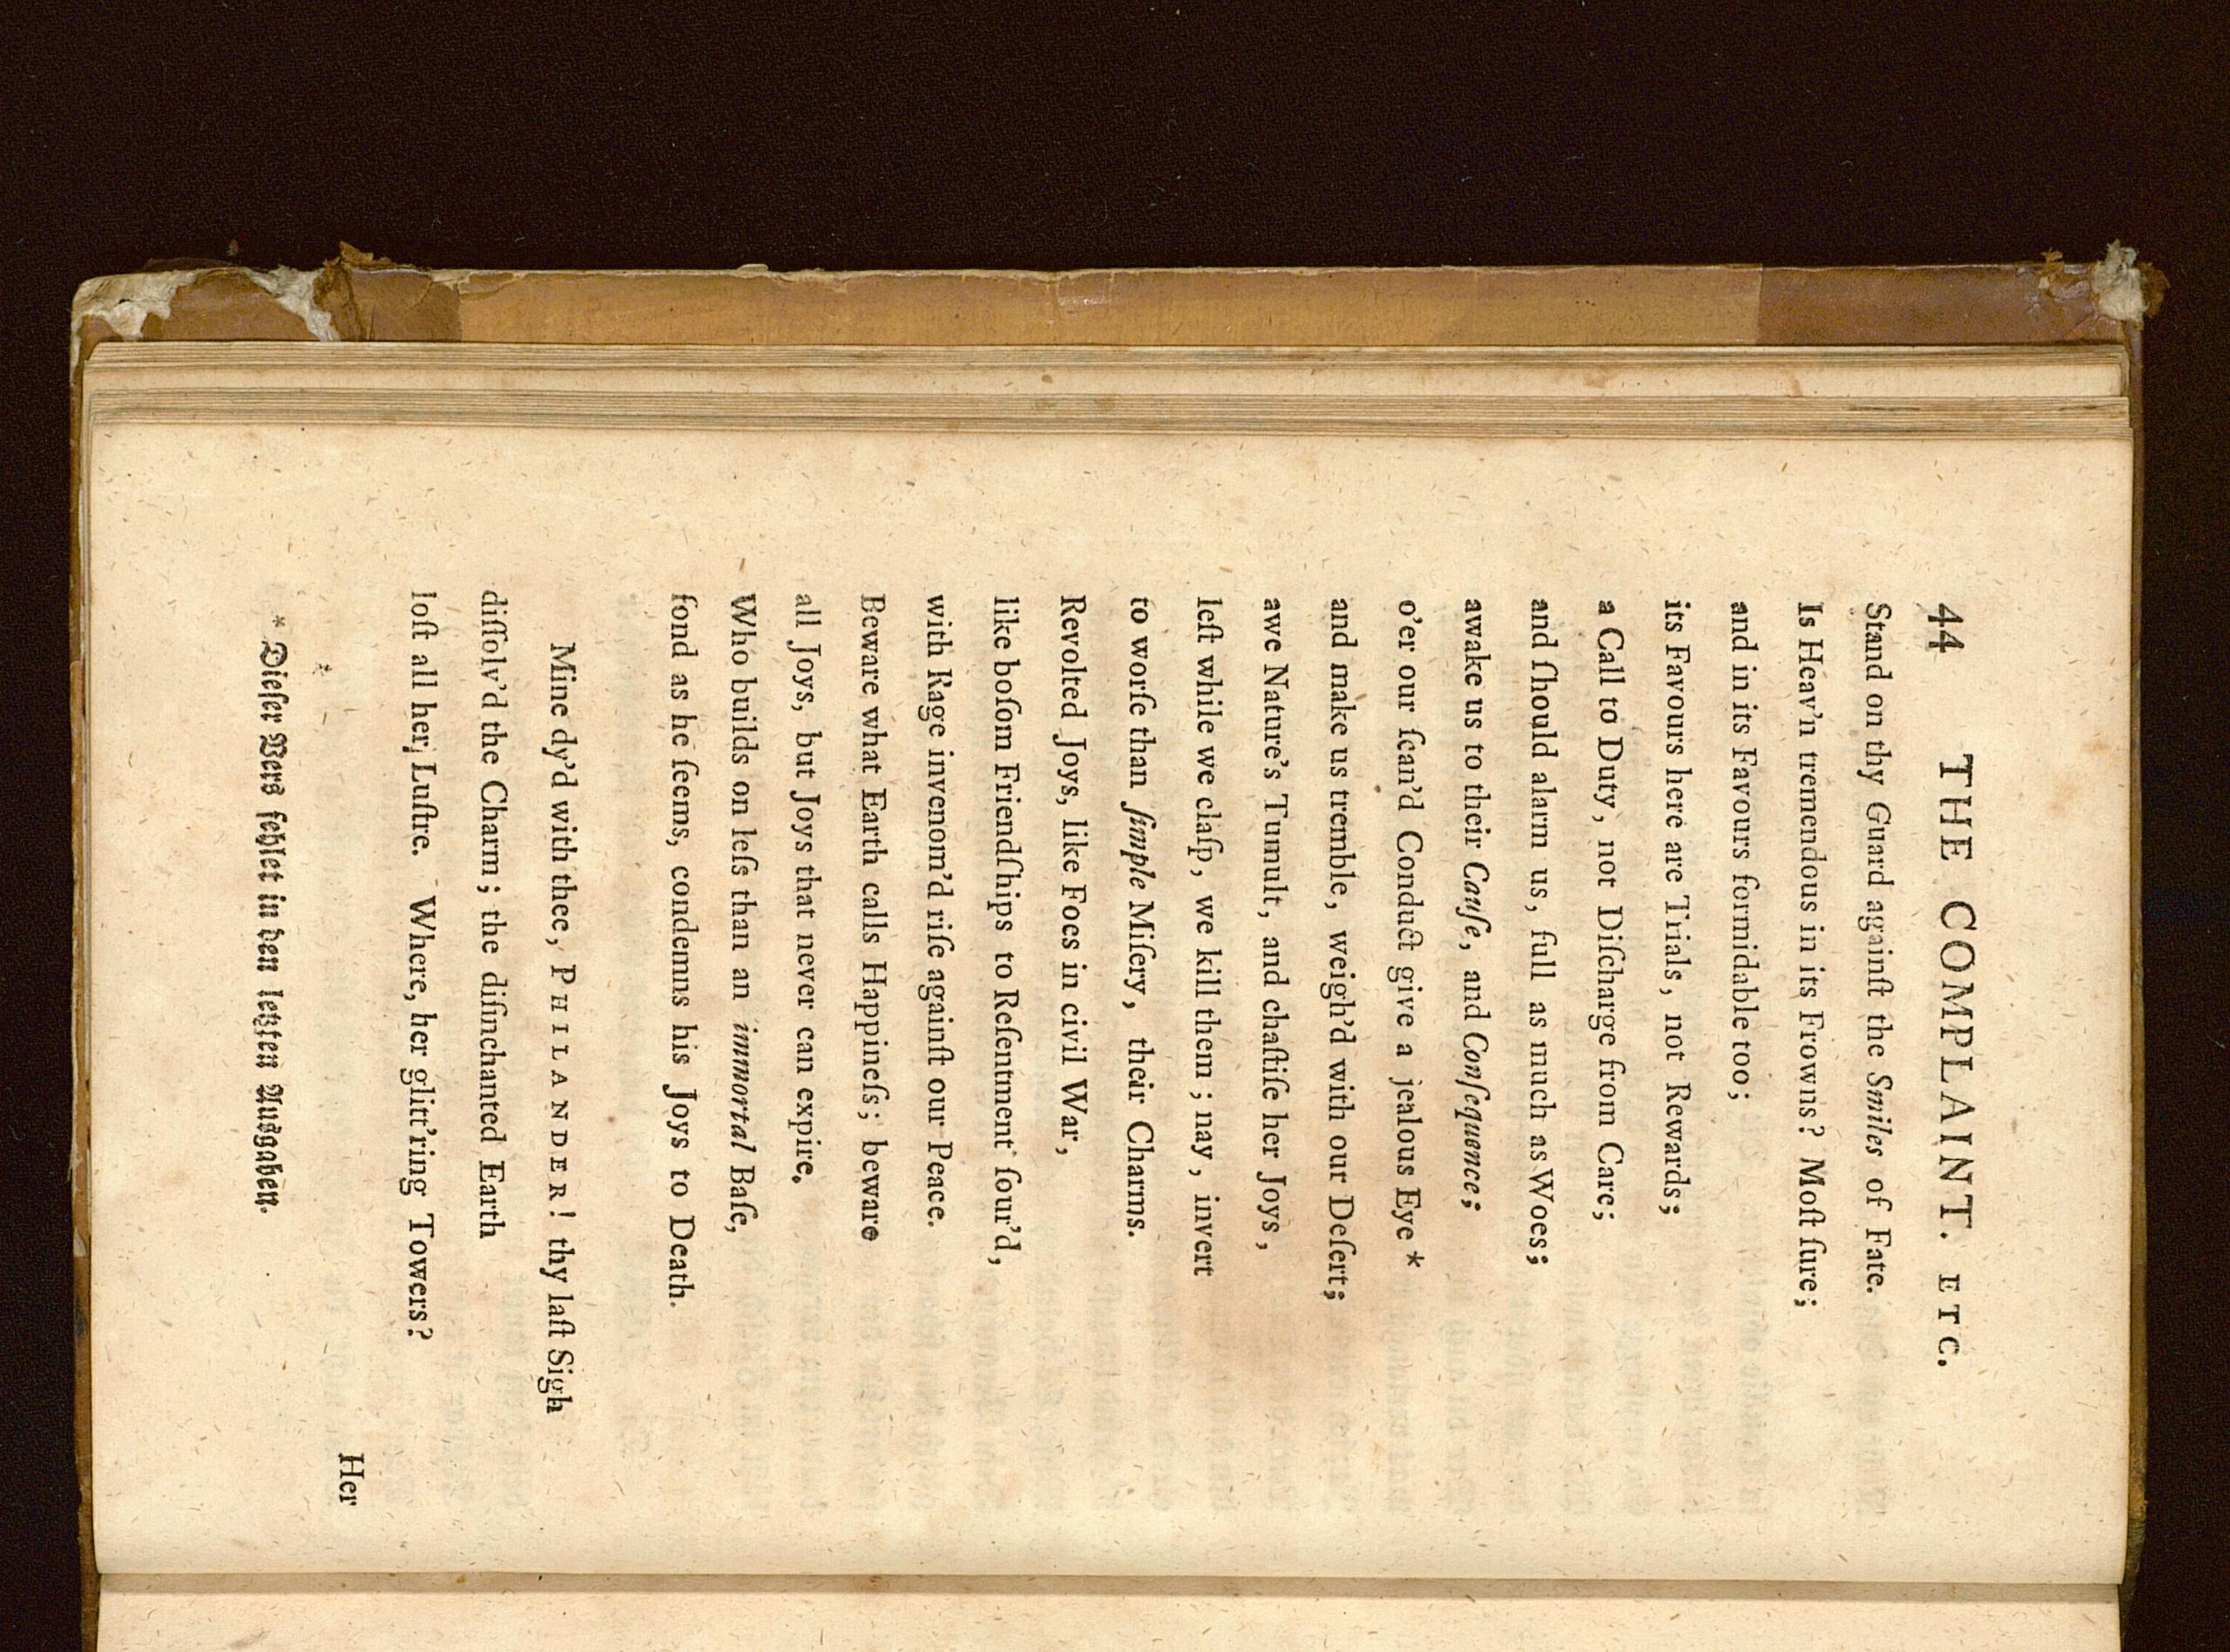 44 THE COMPLAINT. ETC.
Stand on thy Guard againſt the Smiles of Fate.
Is Heav'n tremendous in its Frowns? Moſt ſure;
and in its Favours formidable too;
its Favours here are Trials, not Rewards;
a Call to Duty, not Diſcharge from Care;
and ſhould alarm us, full as much as Woes;
awake us to their Cauſe, and Conſequence;
o'er our ſcan'd Conduct give a jealous Eye *
and make us tremble, weigh'd with our Deſert;
awe Nature's Tumult, and chaſtiſe her Joys,
leſt while we claſp, we kill them; nay, invert
to worſe than ſimple Miſery, their Charms.
Revolted Joys, like Foes in civil War,
like boſom Friendſhips to Reſentment ſour'd,
with Rage invenom'd riſe againſt our Peace.
Beware what Earth calls Happineſs; beware
all Joys, but Joys that never can expire.
Who builds on leſs than an immortal Baſe,
fond as he ſeems, condemns his Joys to Death.
Mine dy'd with thee, PHILANDER! thy laſt Sigh
diſſolv'd the Charm; the diſinchanted Earth
loſt all her Luſtre. Where, her glitt'ring Towers?
Her
* Dieſer Vers fehlet in den letzten Ausgaben.